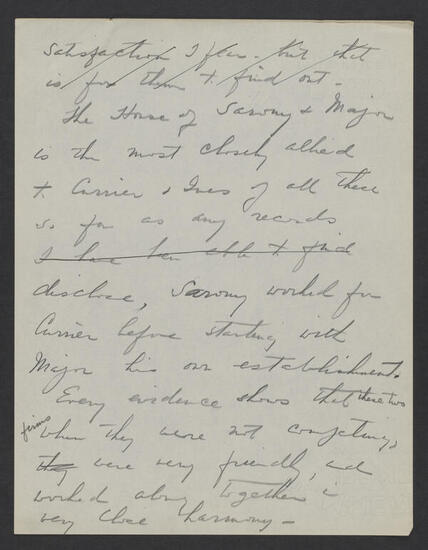 satisfaction I fear - but that
is for them to find out -
The House of Sarony & Major
is the most closely allied
to Currier & Ives of all these
so far as any records
I have been able to find
disclose, Sarony worked for
Currier before starting with
Major his own establishment.
Every evidence shows that these two
firms when they were not competing,
they were very friendly, and
worked along together in
very close harmony -